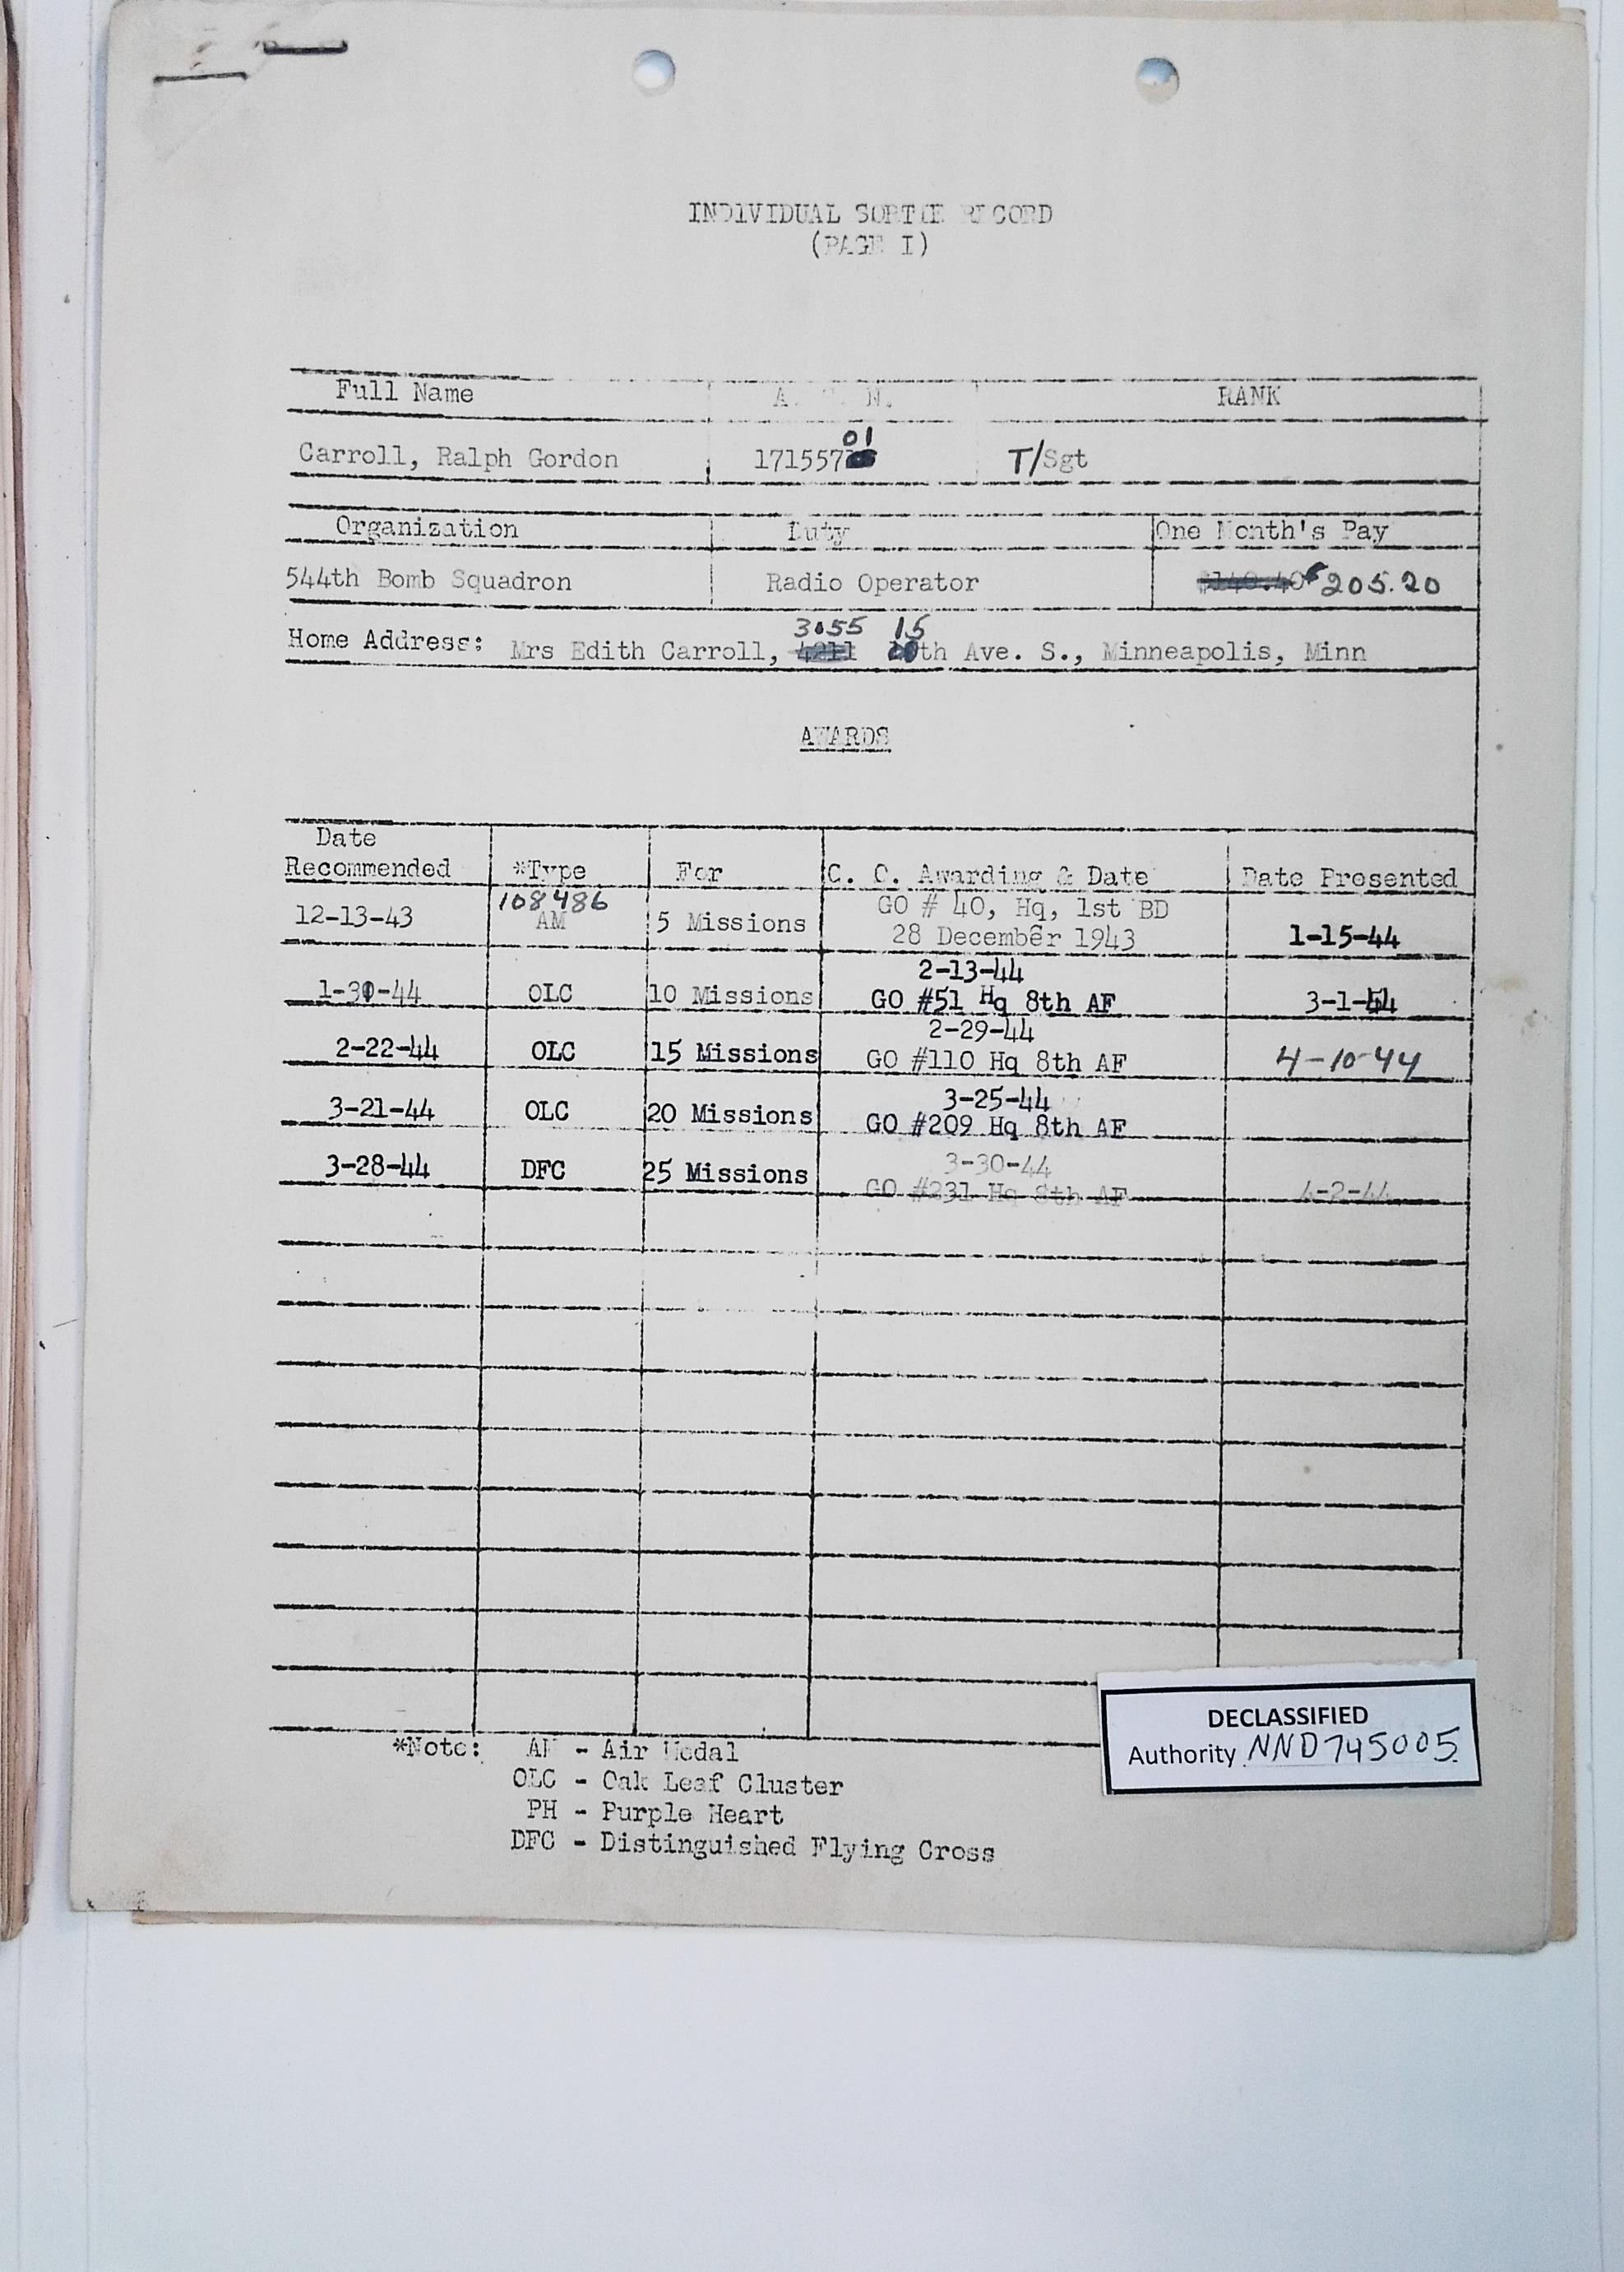 INDIVIDUAL SORTIE RECORD
(PAGE I)
Full Name A. S. N. RANK
01
Carroll, Ralph Gordon 171557 T/Sgt
Organization Duty One Month's Pay
544th Bomb Squadron Radio Operator $140.40 205.20
3055 15
Home Address: Mrs Edith Carroll, 4211 th Ave. S., Minneapolis, Minn
AWARDS
Date
Recommended *Type For C. O. Awarding & Date Date Presented
108486 GO # 40, Hq, 1st BD
12-13-43 AM 5 Missions 28 December 1943 1-15-44
2-13-44
1-30-44 OLC 10 Missions GO #51 Hq 8th AF 3-1-44
2-29-44
2-22-44 OLC 15 Missions GO #110 Hq 8th AF 4-10-44
3-25-44
3-21-44 OLC 20 Missions GO #209 Hq 8th AF
3-30-44
3-28-44 DFC 25 Missions GO #231 Hq 8th AF 4-2-44
*Note: AM - Air Medal
OLC - Oak Leaf Cluster
PH - Purple Heart
DFC - Distinguished Flying Cross
DECLASSIFIED
Authority NND745005